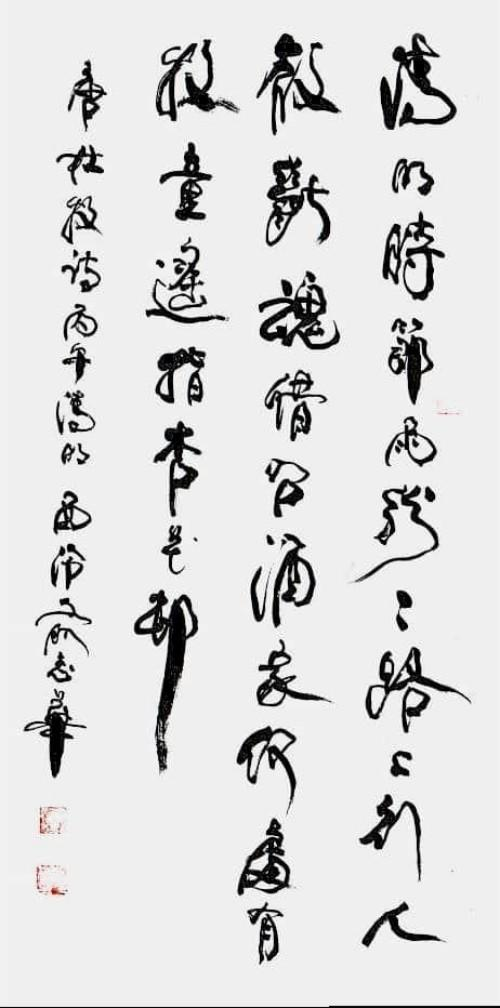 清明時節雨紛〻路上行人
欲斷魂借問酒家何處有
牧童遙指杏花邨
唐杜牧詩丙午清明西泠